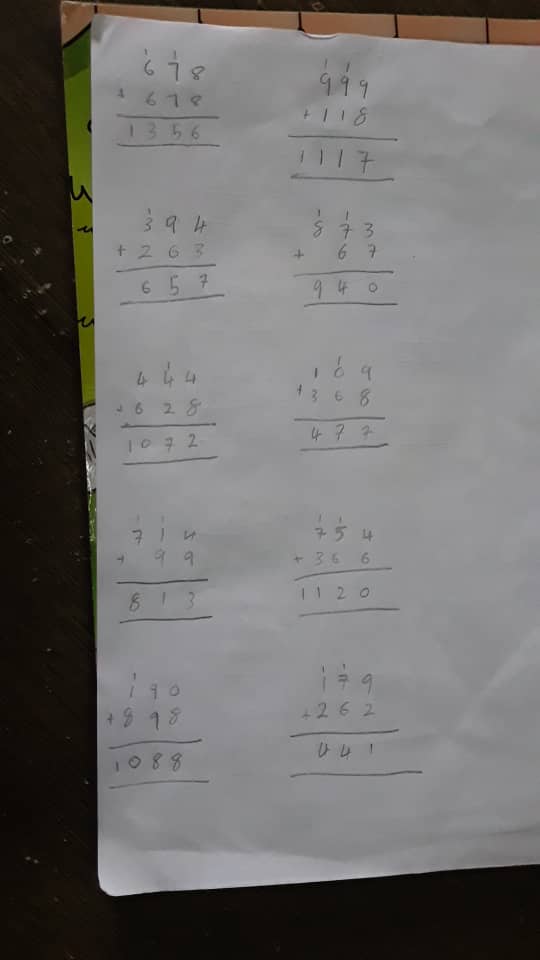 1 1
6 7 8
+ 6 7 8
1 3 5 6
1 1
9 9 9
+ 1 1 8
1 1 1 7
1
3 9 4
+ 2 6 3
6 5 7
1 1
8 7 3
+ 6 7
9 4 0
1
4 4 4
+ 6 2 8
1 0 7 2
1
1 0 9
+ 3 6 8
4 7 7
1 1
7 1 4
+ 9 9
8 1 3
1 1
7 5 4
+ 3 6 6
1 1 2 0
1
1 9 0
+ 8 9 8
1 0 8 8
1 1
1 7 9
+ 2 6 2
4 4 1